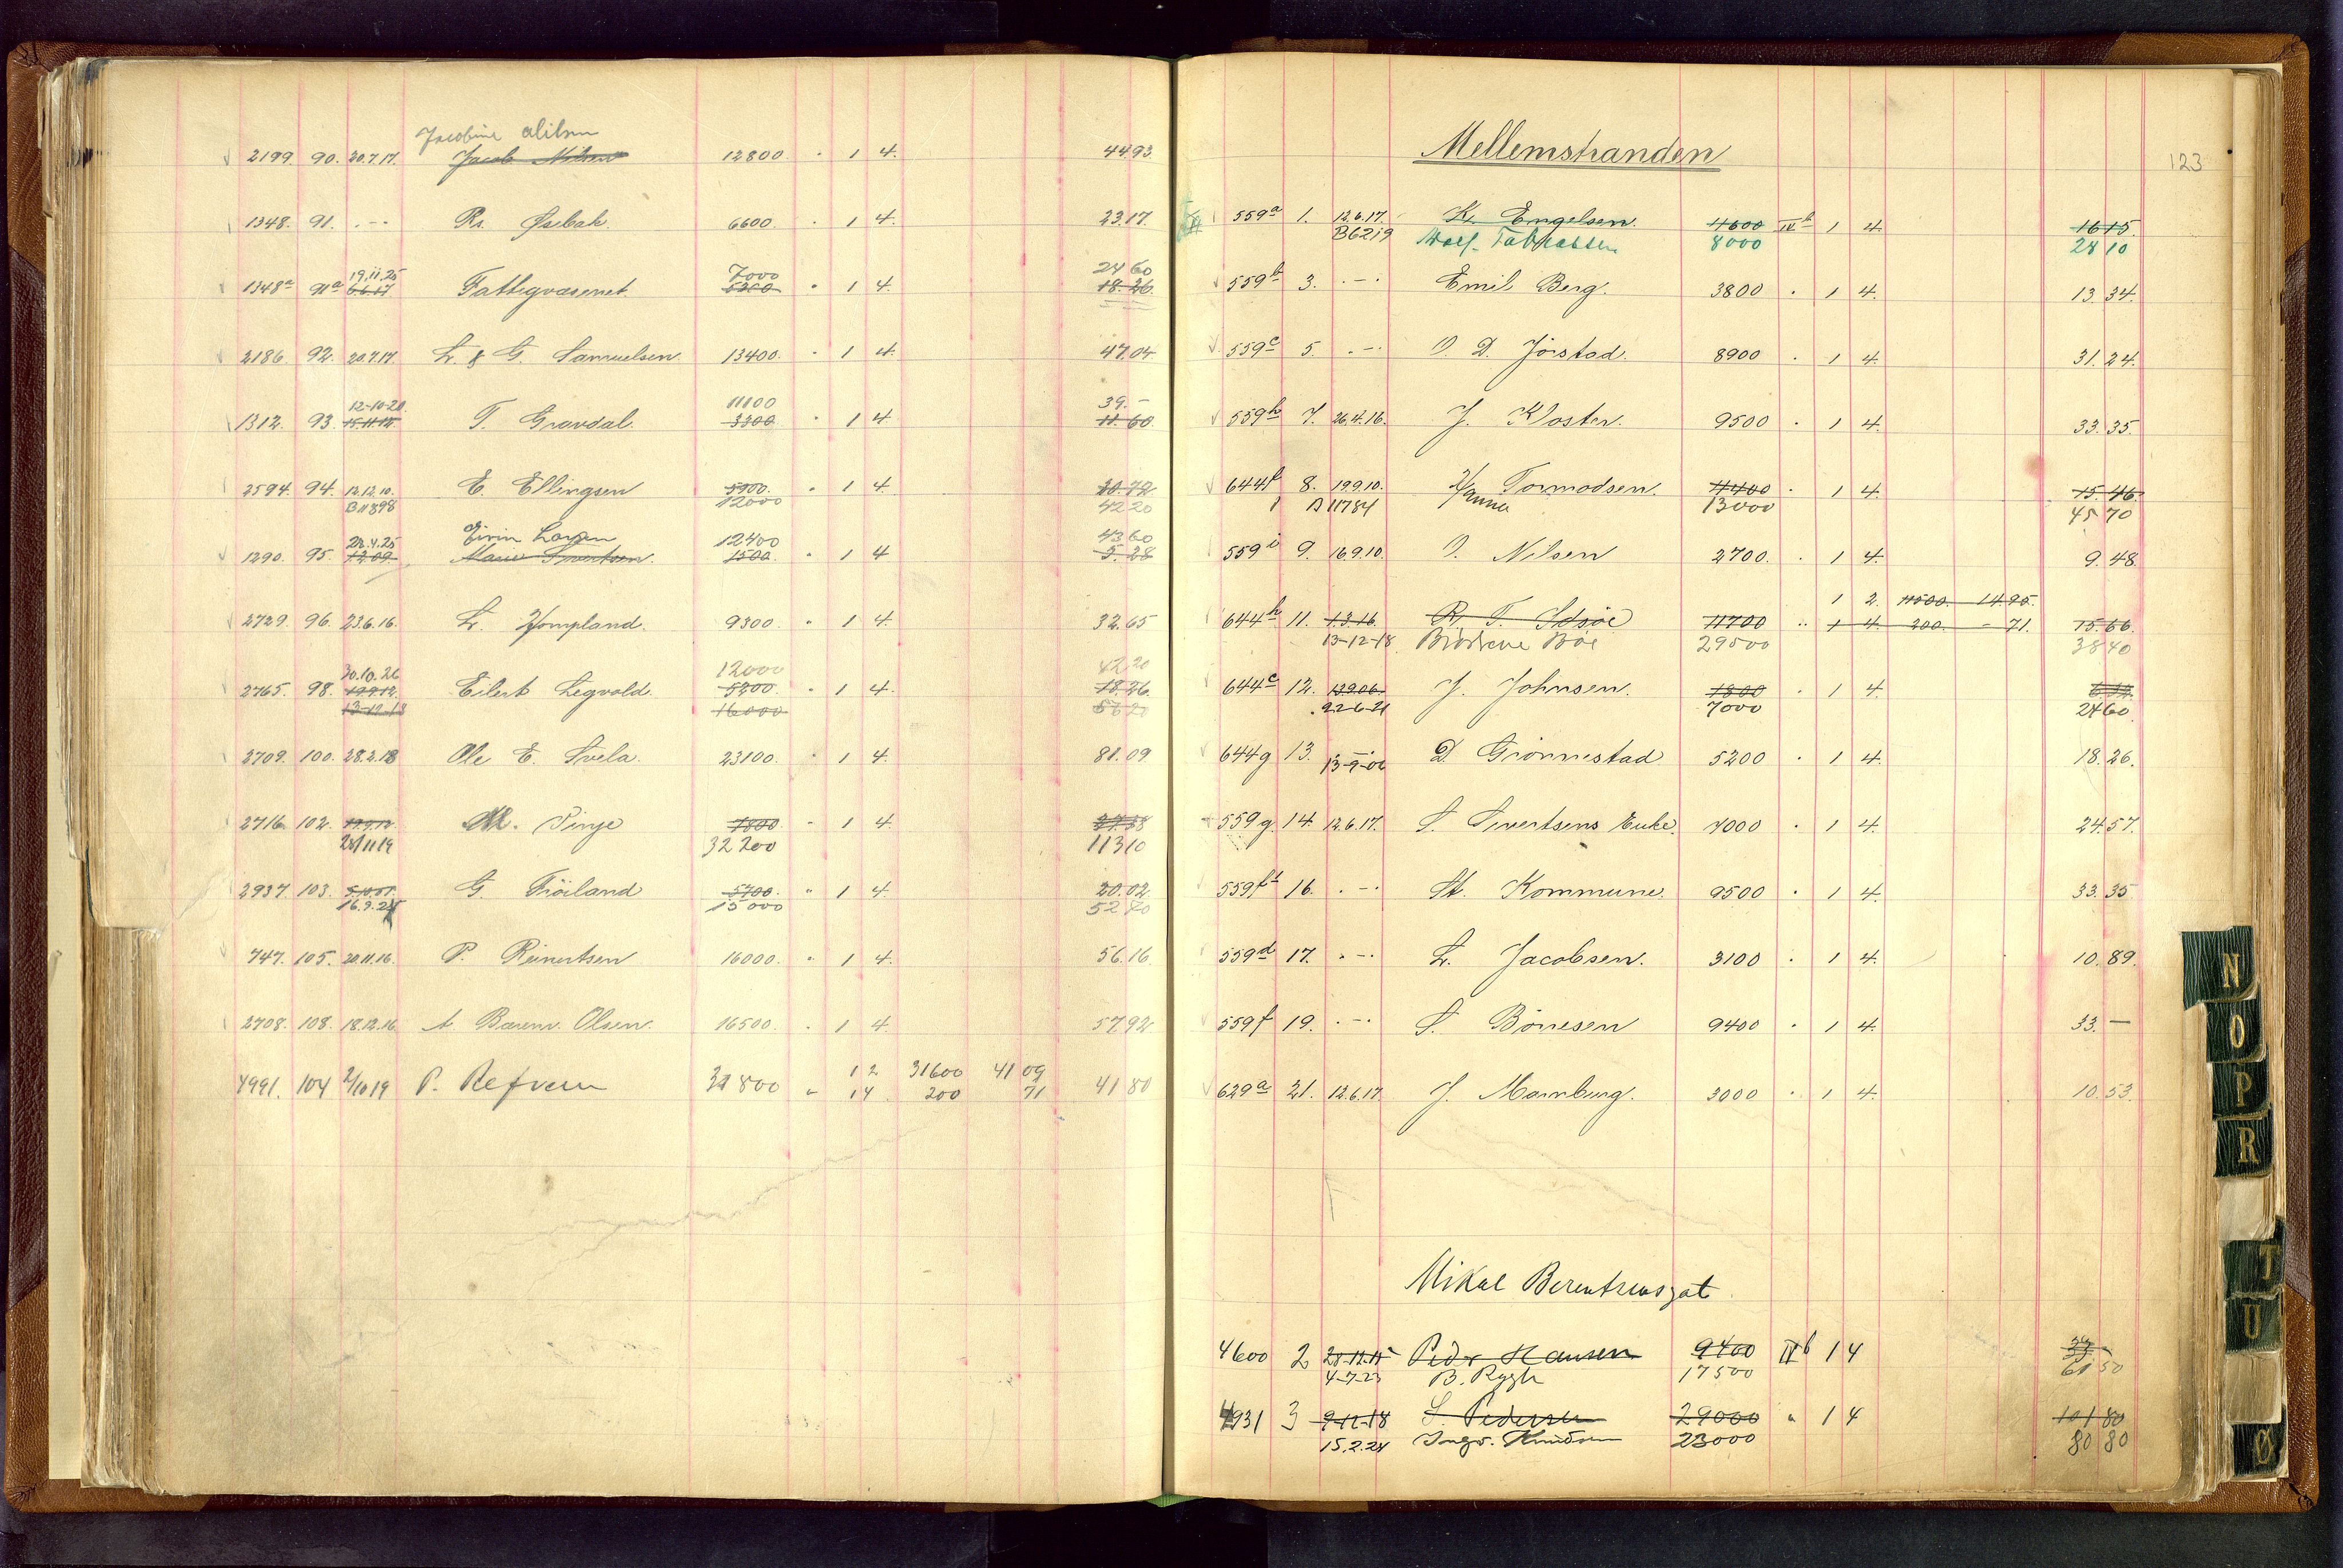 Jacobine
2199. 90. 20.7.17. Jacob Nilsen 12800 " 1 4. 44.93
1348. 91. . -- Rs. Øsebak. 6600. " 1 4. 23.17.
19.11.25 7000 24 60
1348a 91a 6.6.17 Fattigvæsenet. 5200 " 1 4. 18.26.
2186. 92. 20.7.17. L. & G. Samuelsen. 13400. " 1 4. 47.04
12-10-20. 11100 39.-
1312. 93. 15.11.12. T. Gravdal. 3300 " 1 4 11.60.
2594. 94. 12.12.10. E. Ellingsen 5900. " 1 4. 20.72
B11898 12000 42 20
28.4.25 Eivin Larsen 12400 43 60
1290. 95. 1.2.09. Marie Sivertsen. 1500. " 1 4 5.28
2729. 96. 23.6.16. L. Hompland. 9300. " 1 4. 32.65
30.10.26 12000 42 20
2765. 98. 19.9.12. Eilert Legvold. 5200. " 1 4. 18.26.
13-12-18 16000 56 20
2709. 100. 28.2.18 Ole E. Svela. 23100. " 1 4. 81.09
2716. 102. 19.9.12. M. Pinje 7800 " 1 4. 27.38
28/11 19 32 200 113 10
2937. 103. G. Fröiland 5700. " 1 4. 20.02
16.9.24 15 000 52 70
747. 105. 20.11.16. P. Reinertsen 16000. " 1 4. 56.16.
2708. 108. 18.12.16 A. Barenv. Olsen. 16500. " 1 4. 57.92
1 2 31600 41 09
4991. 104 2/10 19 P. Refvem 31 800 " 1 4 200 71 41 80
Mellemstranden
123
559a 1. 12.6.17. K. Engelsen. 4600 IIb 1 4 16 15
B6219 8000 28 10
559b 3. . -- . Emil Berg. 3800 " 1 4. 13.34.
559c 5. . -- . O. D. Jörstad. 8900 " 1 4. 31.24.
559h 7. 26.4.16. J. Kloster. 9500 " 1 4. 33.35.
644f 8. 19.9.10. Tormodsen. 4400 " 1 4. 15.46.
B 11784 Hanna 13000 45 70
559i 9. 16.9.10. O. Nilsen 2700. " 1 4. 9.48.
1 2. 11500. 14.95.
644h 11. 1.3.16. R. T. Idsöe 11700 " 1 4. 200. - 71. 15.66.
13-12-18 Brödrene Böe 29500 38 40
644c 12. 13.9.06. J. Johnsen. 1800 " 1 4. 6.32.
22-6-21 7000 24 60
644g 13. . -- . D. Grönnestad 5200 " 1 4. 18.26.
13-9-06
559g 14. 12.6.17. S. Sivertsens Enke. 7000 " 1 4. 24.57.
559f1 16. . -- . St. Kommune. 9500 " 1 4. 33.35
559d 17. . -- . L. Jacobsen. 3100 " 1 4. 10.89.
559f 19. . -- . S. Bönesen 9400 " 1 4. 33.—
629a 21. 12.6.17. J. Marnburg. 3000 " 1 4. 10.53.
Mikal Berentsensgat
4600 2 28-12-15 Peder Hansen 9400 IIb 1 4 33.-
4-7-23 B. Rygh 17500 61 50
4931 3 9-12-18 S. Pedersen 29000 " 1 4 101 80
15.2.24 Ingv. Knudsen 23000 80 80
N
O
P
R
T
U
Ø